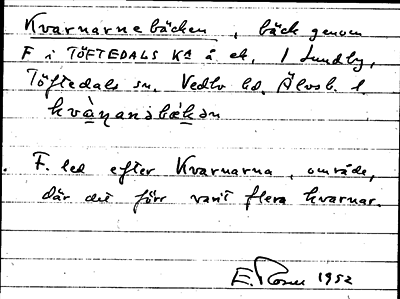 Kvarnarnebäcken, bäck genom
F i TÖFTEDALS Ka å ek. 1 Lundby,
Töftedals sn. Vedbo hd. Älvsb. l.
F. led efter Kvarnarna, område,
där det förr varit flera kvarnar.
E. Rosen 1952